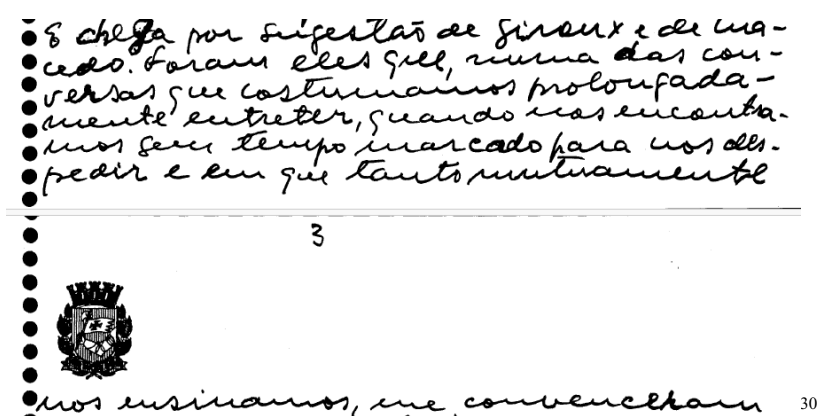 E chega por sugestão de Giroux e de Ma-
cedo. Foram eles que, numa das con-
versas que costumamos prolongada-
mente entreter, quando nos encontra-
mos sem tempo marcado para nos des-
pedir e em que tanto mutuamente
3
nos ensinamos, me convenceram
30